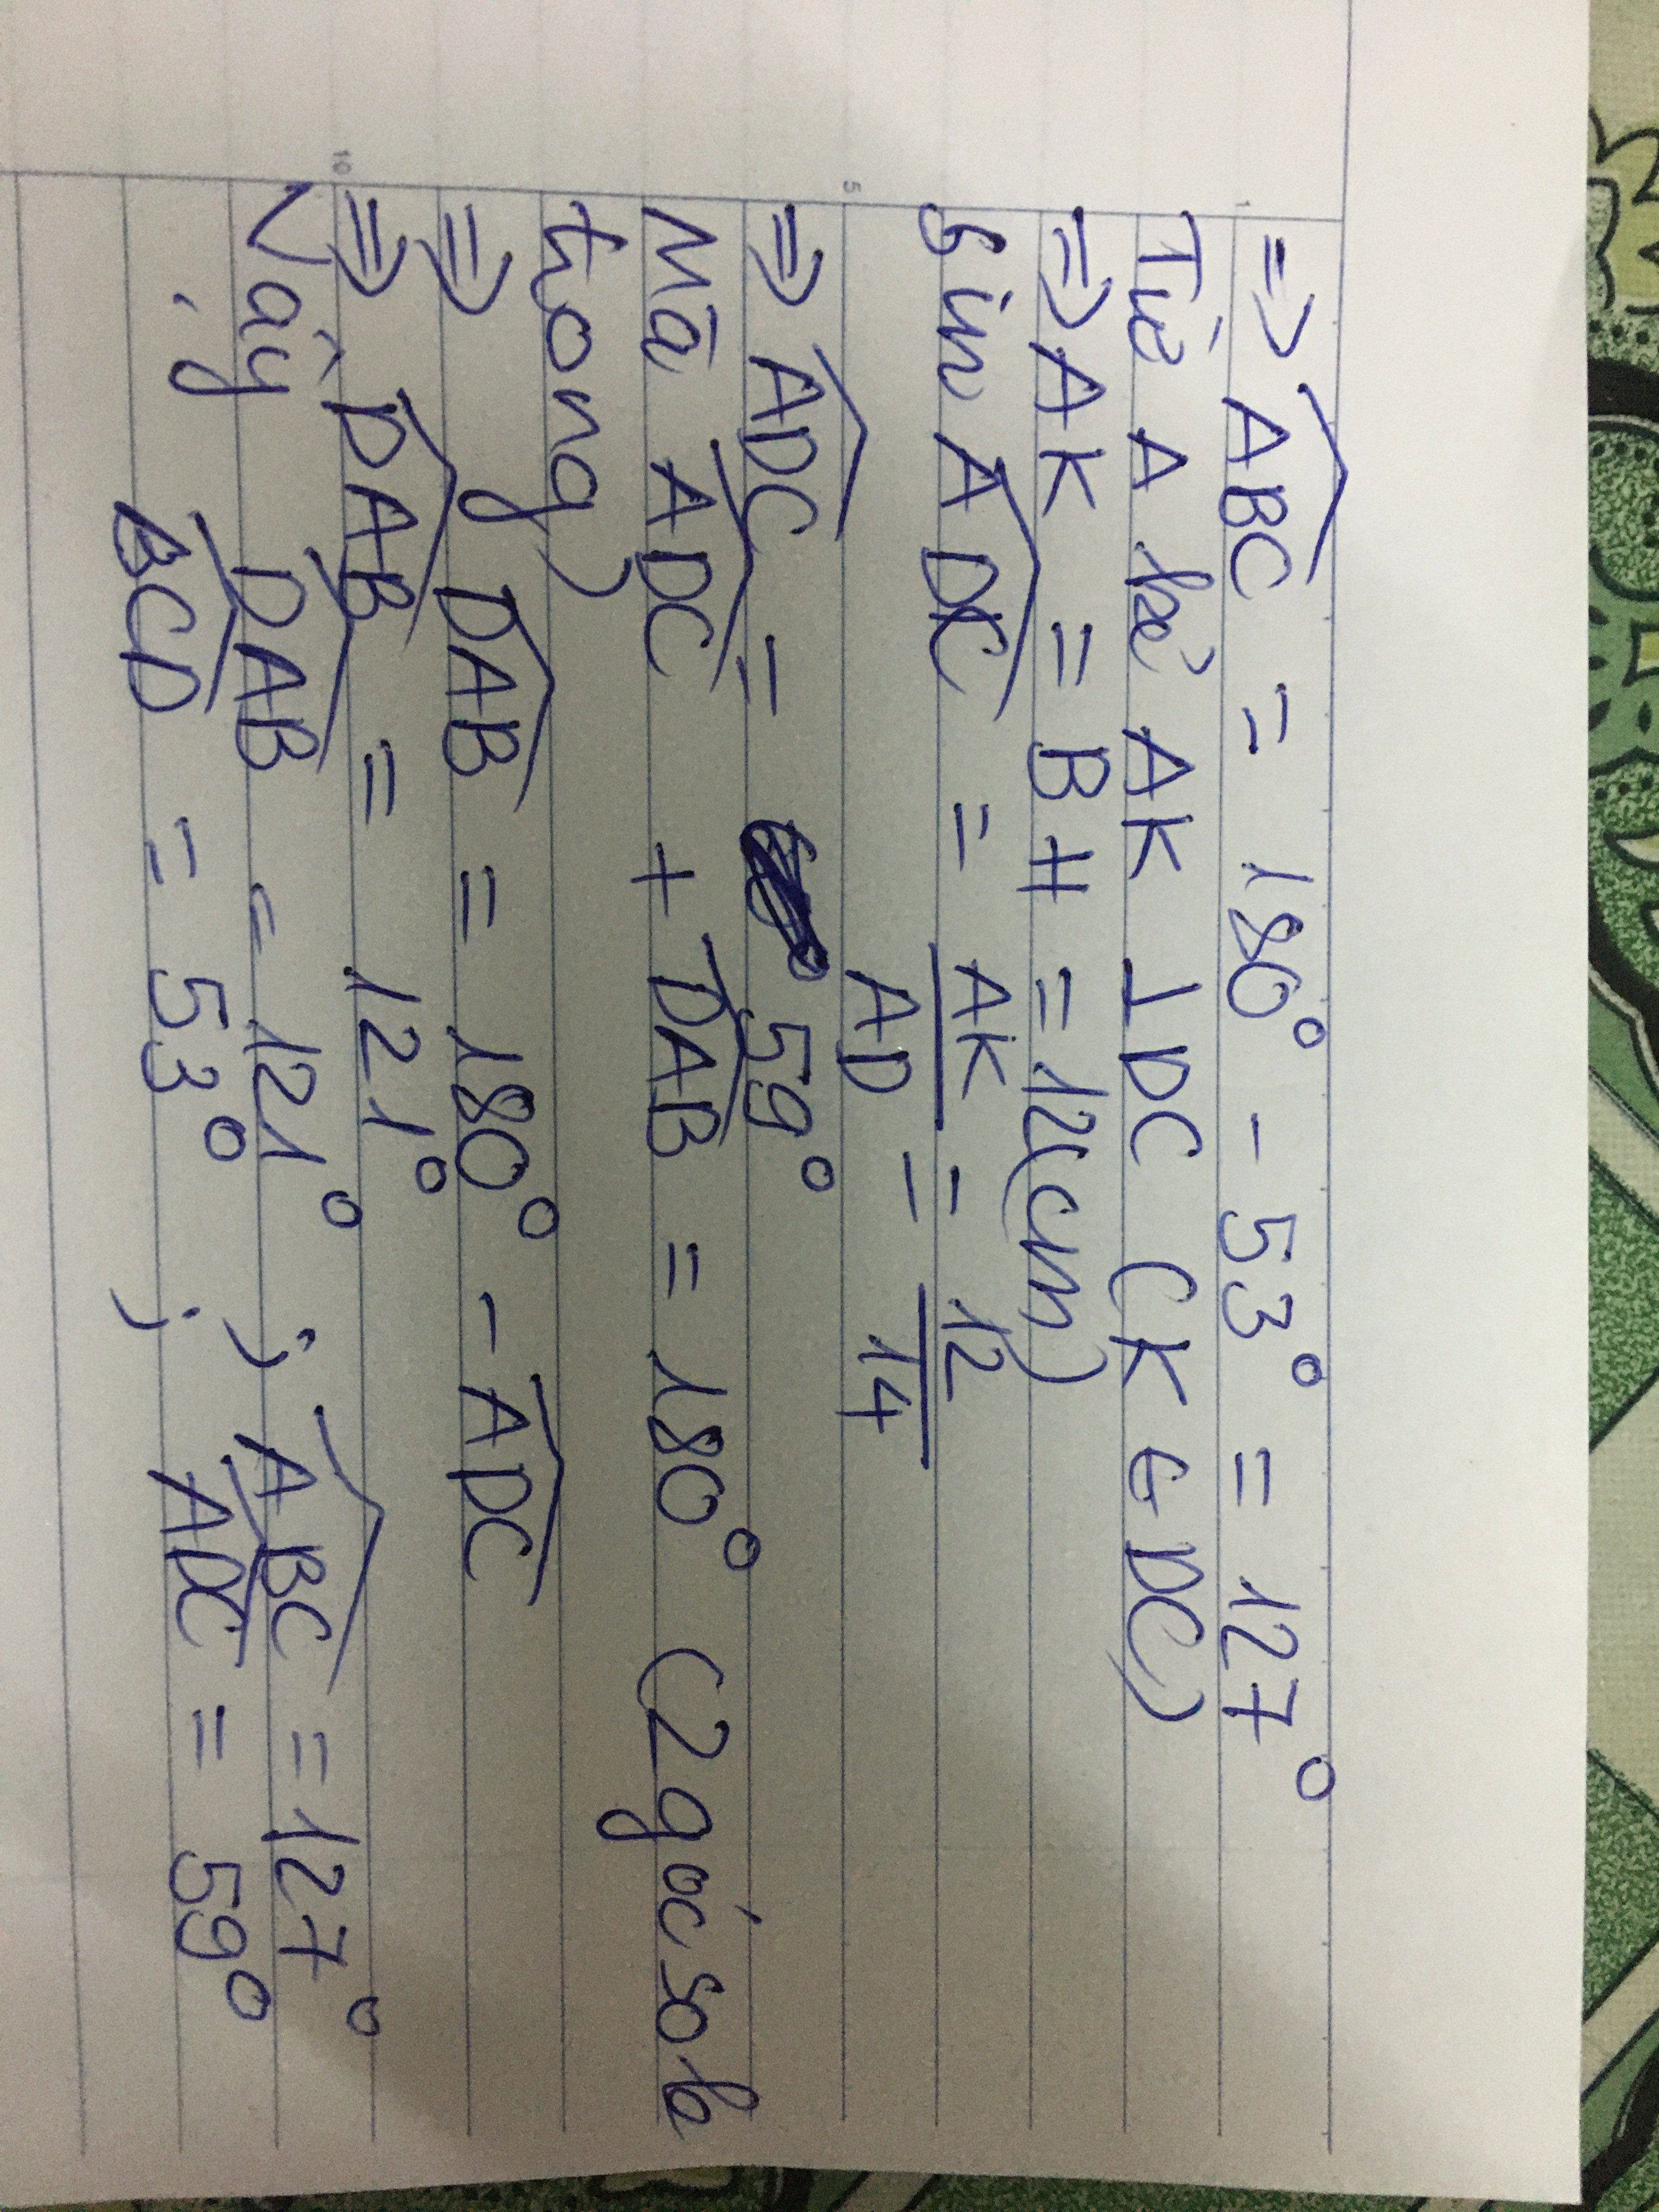 => ABC = 180° - 53° = 127°
Từ A kẻ AK ⊥ DC (K ∈ DC)
=> AK = BH = 12(cm)
Sin ADC = AK/AD = 12/14
=> ADC = 59°
Mà ADC + DAB = 180° (2 góc so le
trong)
=> DAB = 180° - ADC
=> DAB = 121°
Vậy DAB = 121° ; ABC = 127°
BCD = 53° ; ADC = 59°
1
5
10